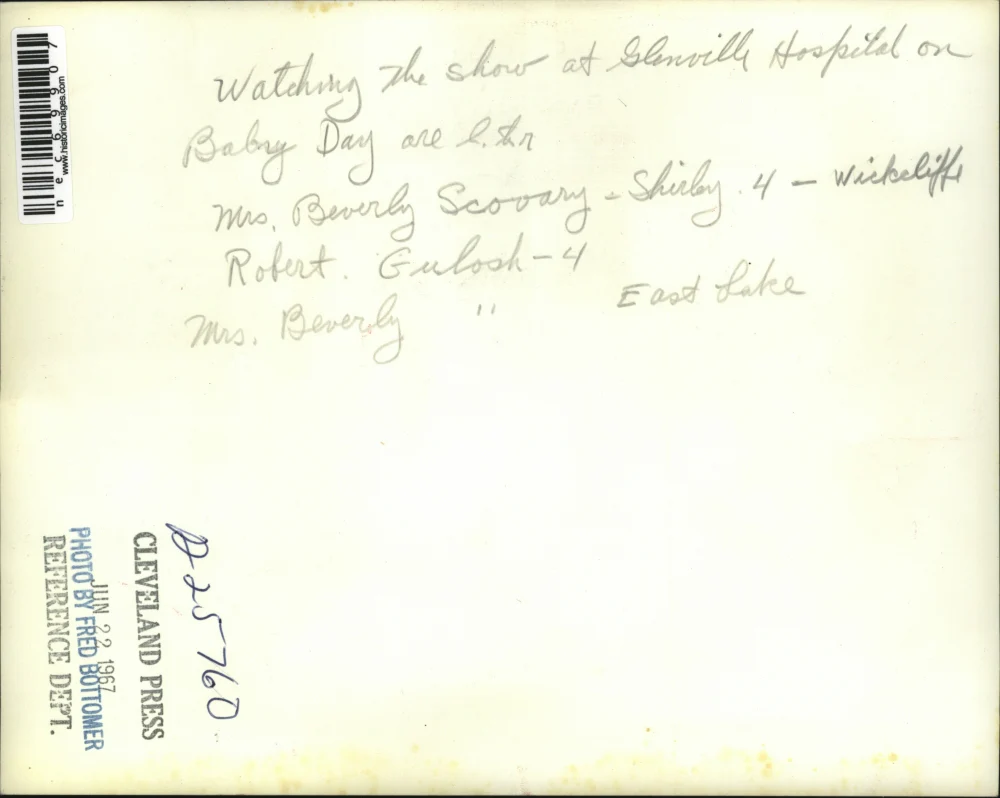 Watching the show at Glenville Hospital on
Baby Day are l. to r
Mrs. Beverly Scovary - Shirley. 4 - Wickcliffe
Robert. Gulosh - 4
Mrs. Beverly " East Lake
nec69907
www.historicimages.com
D25760
CLEVELAND PRESS
JUN 22 1967
PHOTO BY FRED BOTTOMER
REFERENCE DEPT.